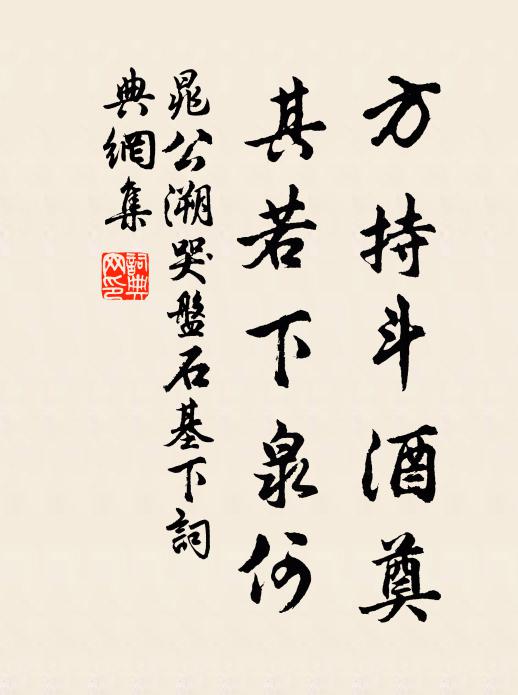 方持斗酒奠
其若下泉何
晁公溯哭盤石基下詞
典網集
詞典網印